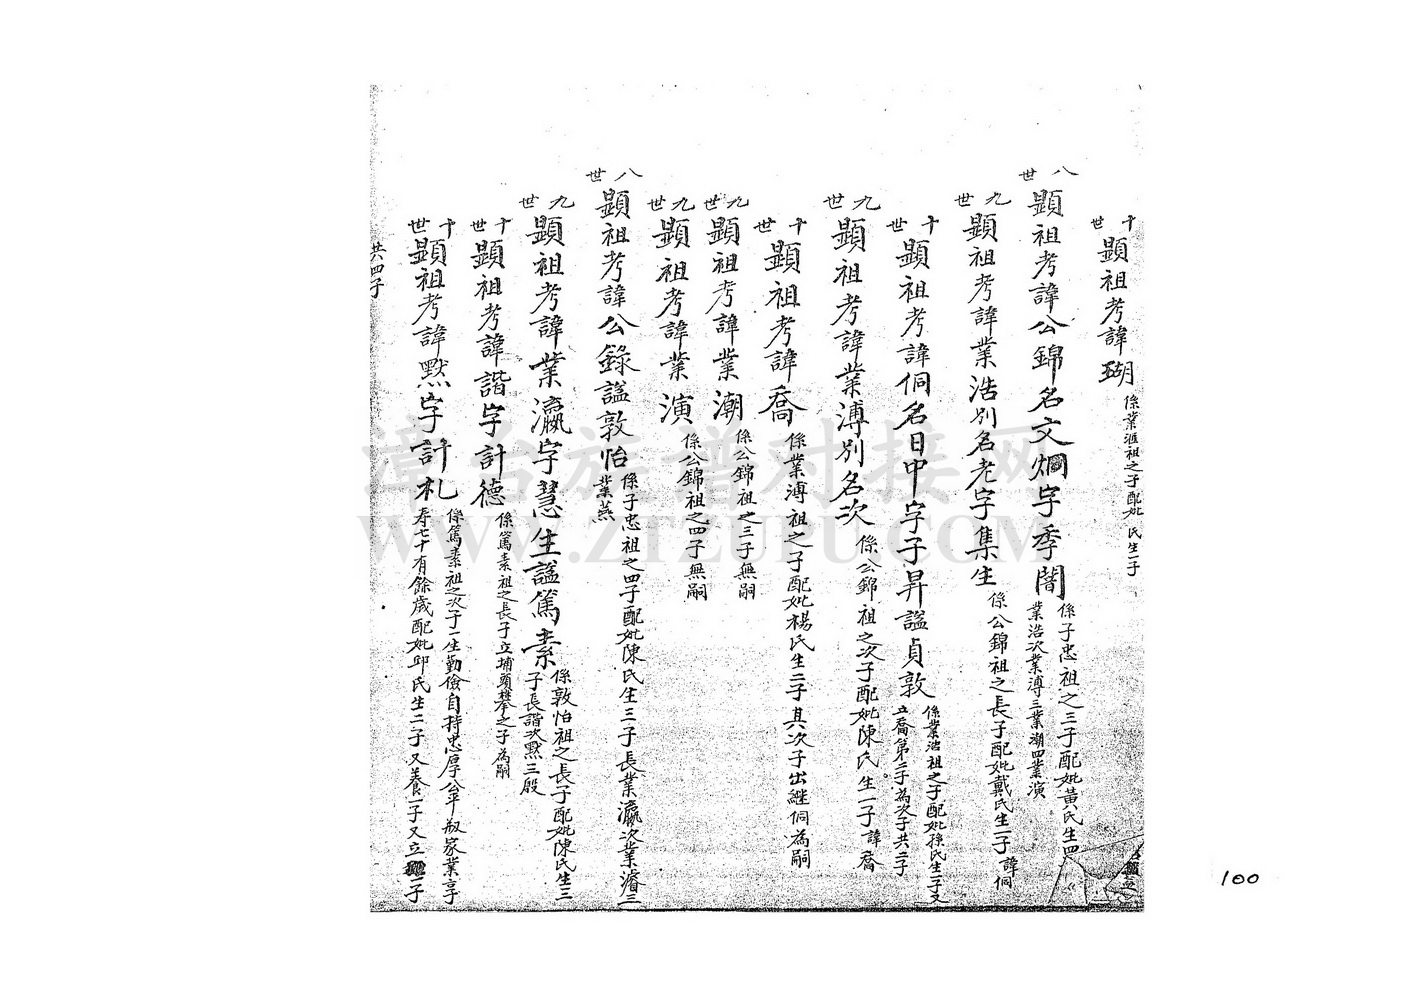 十世
顯祖考諱瑚
係業滙祖之子配妣 氏生一子
八世
顯祖考諱公錦名文炯字季闇
係子忠祖之三子配妣黃氏生四
業浩次業溥三業潮四業演
九世
顯祖考諱業浩別名老字集生
係公錦祖之長子配妣戴氏生一子諱侗
十世
顯祖考諱侗名日中字子昇諡貞敦
係業浩祖之子配妣孫氏生一子又
立喬第二子為次子共二子
九世
顯祖考諱業溥別名次
係公錦祖之次子配妣陳氏生一子諱喬
十世
顯祖考諱喬
係業溥祖之子配妣楊氏生二子其次子出繼侗為嗣
九世
顯祖考諱業潮
係公錦祖之三子無嗣
九世
顯祖考諱業演
係公錦祖之四子無嗣
八世
顯祖考諱公錄諡敦怡
係子忠祖之四子配妣陳氏生三子長業瀛次業濬三
業燕
九世
顯祖考諱業瀛字慧生諡篤素
係敦怡祖之長子配妣陳氏生三
子長諧次默三殷
十世
顯祖考諱諧字計德
係篤素祖之長子立埔頭攀之子為嗣
十世
顯祖考諱默字計札
係篤素祖之次子一生勤儉自持忠厚公平 家業享
寿七十有餘歲配妣邱氏生二子又養一子又立一子
共四子
漳台族谱对接网
WWW.ZTZUPU.COM
100